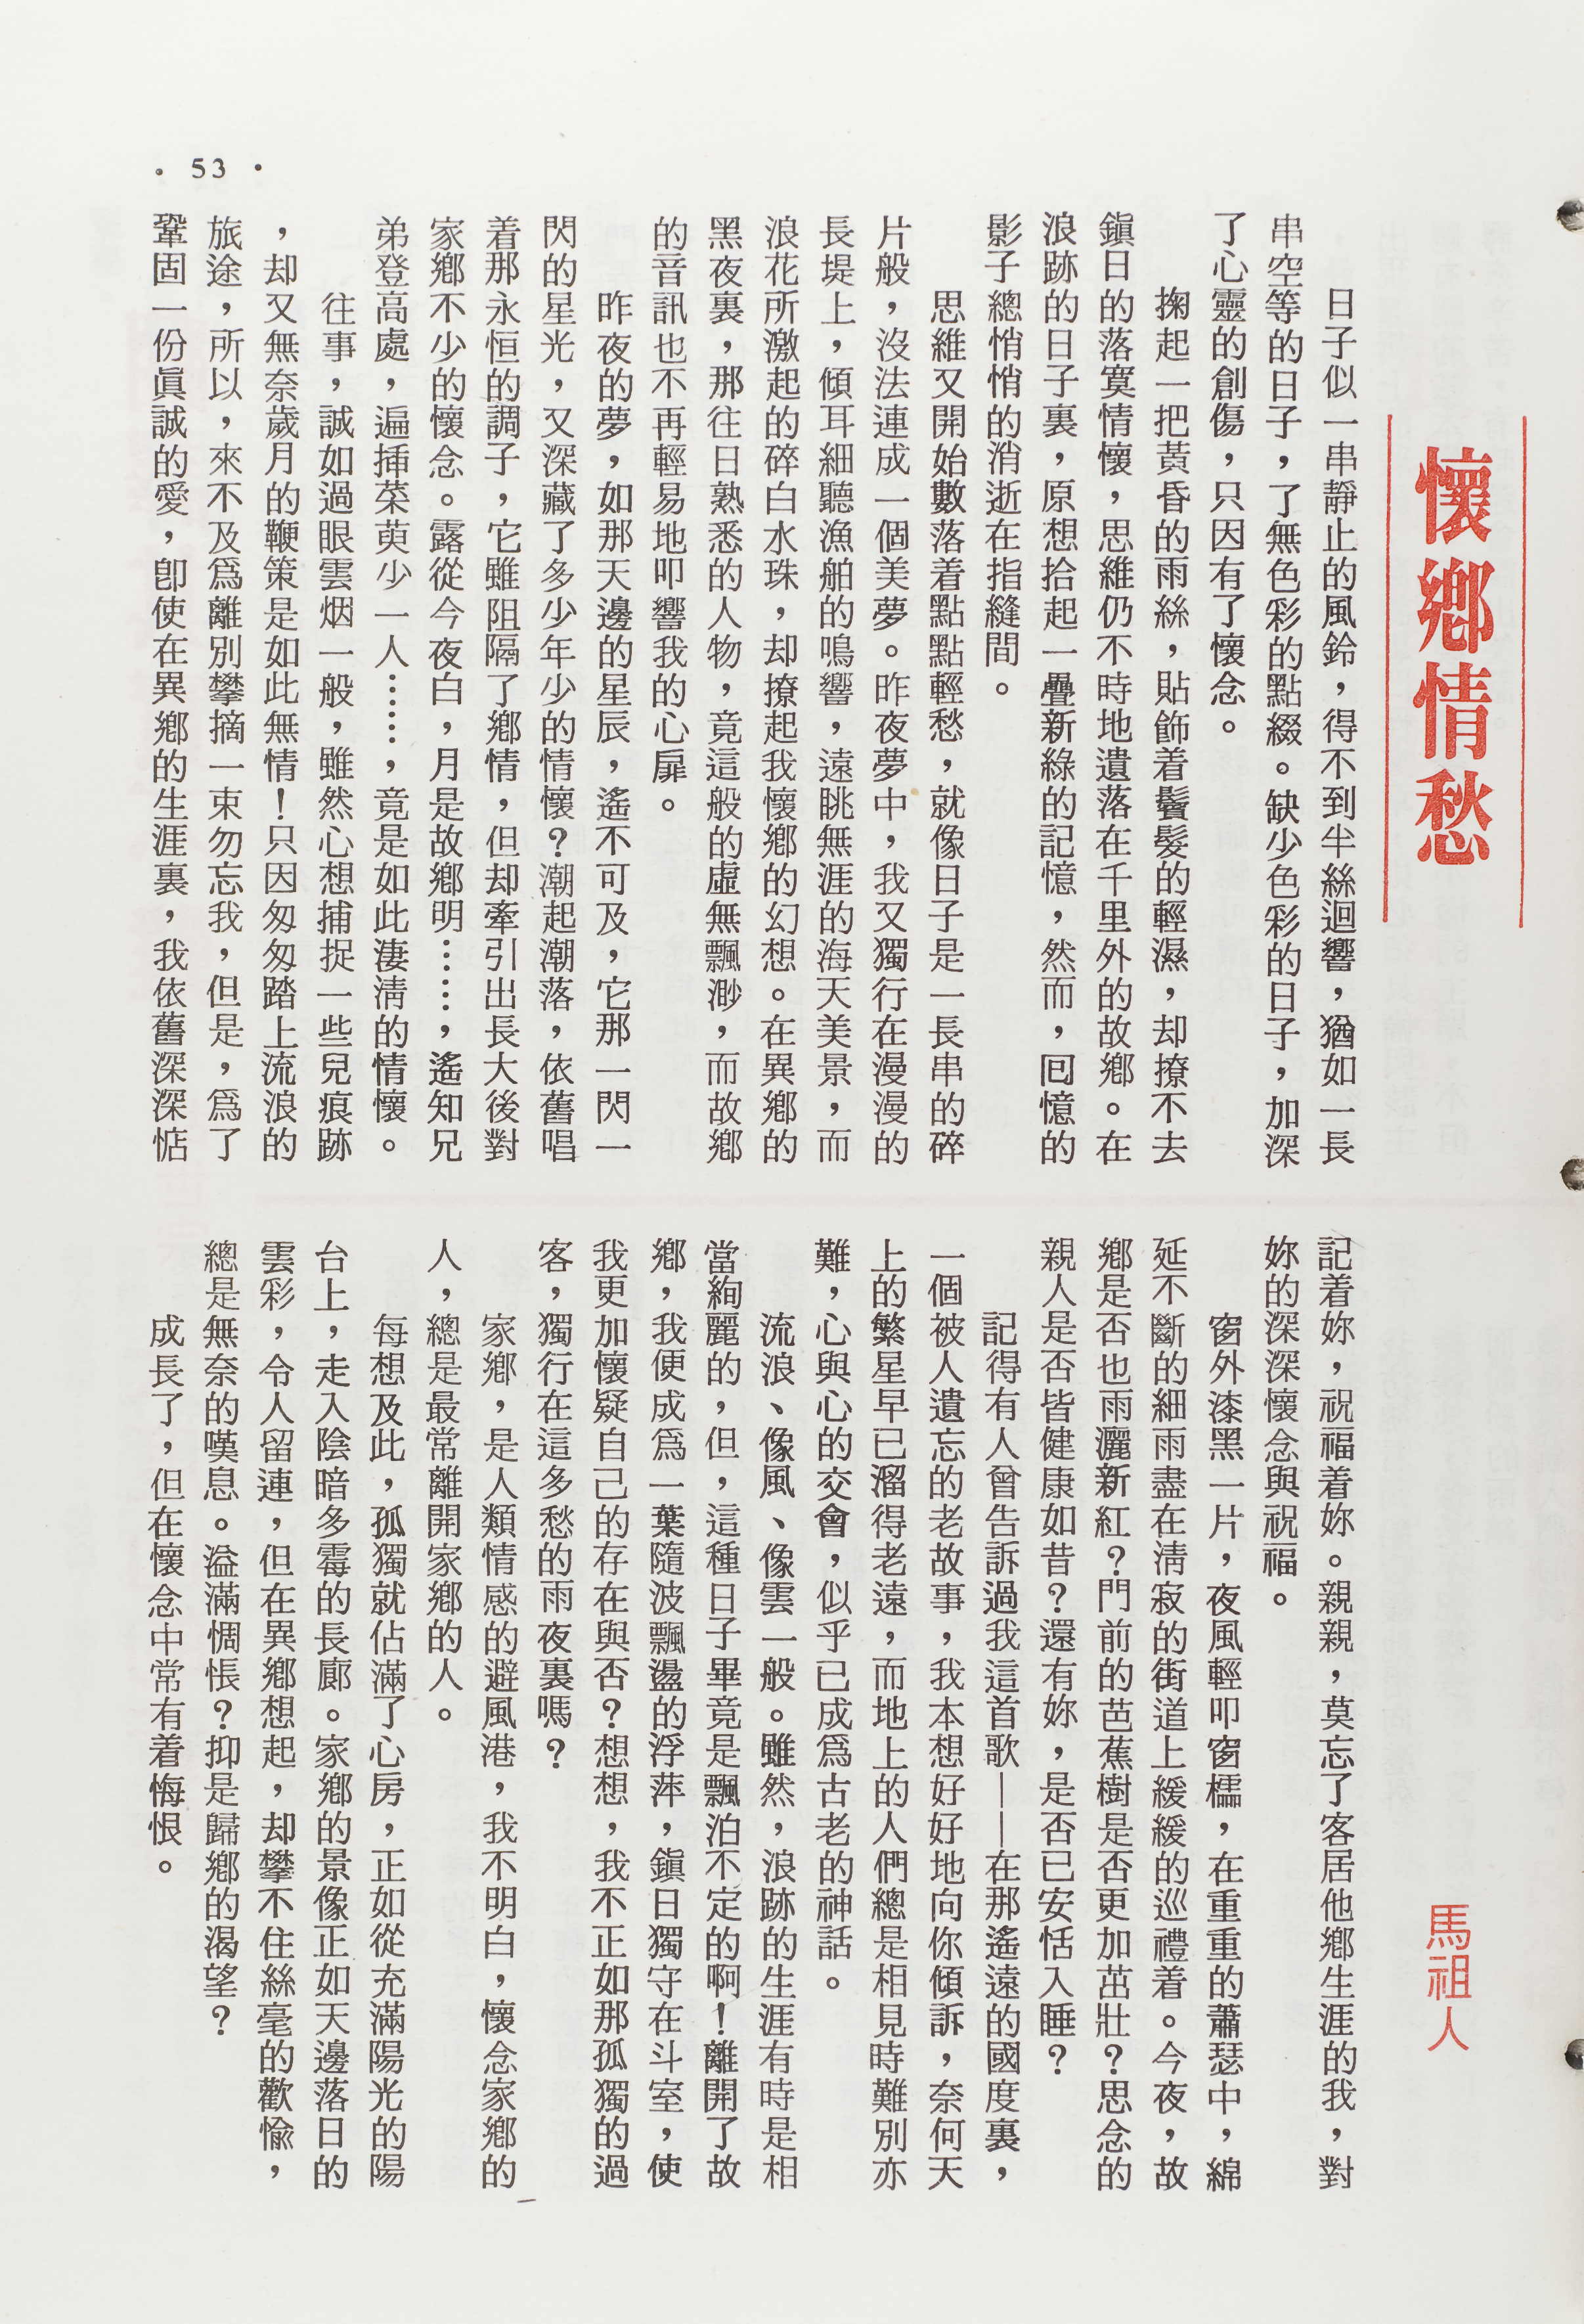 懷鄉情愁
馬祖人
日子似一串靜止的風鈴，得不到半絲迴響，猶如一長
串空等的日子，了無色彩的點綴。缺少色彩的日子，加深
了心靈的創傷，只因有了懷念。
掬起一把黃昏的雨絲，貼飾着鬢髮的輕濕，却撩不去
鎭日的落寞情懷，思維仍不時地遺落在千里外的故鄉。在
浪跡的日子裏，原想拾起一疊新綠的記憶，然而，囘憶的
影子總悄悄的消逝在指縫間。
思維又開始數落着點點輕愁，就像日子是一長串的碎
片般，沒法連成一個美夢。昨夜夢中，我又獨行在漫漫的
長堤上，傾耳細聽漁舶的鳴響，遠眺無涯的海天美景，而
浪花所激起的碎白水珠，却撩起我懷鄉的幻想。在異鄉的
黑夜裏，那往日熟悉的人物，竟這般的虛無飄渺，而故鄉
的音訊也不再輕易地叩響我的心扉。
昨夜的夢，如那天邊的星辰，遙不可及，它那一閃一
閃的星光，又深藏了多少年少的情懷？潮起潮落，依舊唱
着那永恒的調子，它雖阻隔了鄉情，但却牽引出長大後對
家鄉不少的懷念。露從今夜白，月是故鄉明……，遙知兄
弟登高處，遍揷菜萸少一人……，竟是如此淒淸的情懷。
往事，誠如過眼雲烟一般，雖然心想捕捉一些兒痕跡
，却又無奈歲月的鞭策是如此無情！只因匆匆踏上流浪的
旅途，所以，來不及爲離別攀摘一束勿忘我，但是，爲了
鞏固一份眞誠的愛，卽使在異鄉的生涯裏，我依舊深深惦
記着妳，祝福着妳。親親，莫忘了客居他鄉生涯的我，對
妳的深深懷念與祝福。
窗外漆黑一片，夜風輕叩窗櫺，在重重的蕭瑟中，綿
延不斷的細雨盡在淸寂的街道上緩緩的巡禮着。今夜，故
鄉是否也雨灑新紅？門前的芭蕉樹是否更加茁壯？思念的
親人是否皆健康如昔？還有妳，是否已安恬入睡？
記得有人曾告訴過我這首歌——在那遙遠的國度裏，
一個被人遺忘的老故事，我本想好好地向你傾訴，奈何天
上的繁星早已溜得老遠，而地上的人們總是相見時難別亦
難，心與心的交會，似乎已成爲古老的神話。
流浪、像風、像雲一般。雖然，浪跡的生涯有時是相
當絢麗的，但，這種日子畢竟是飄泊不定的啊！離開了故
鄉，我便成爲一葉隨波飄盪的浮萍，鎭日獨守在斗室，使
我更加懷疑自己的存在與否？想想，我不正如那孤獨的過
客，獨行在這多愁的雨夜裏嗎？
家鄉，是人類情感的避風港，我不明白，懷念家鄉的
人，總是最常離開家鄉的人。
每想及此，孤獨就佔滿了心房，正如從充滿陽光的陽
台上，走入陰暗多霉的長廊。家鄉的景像正如天邊落日的
雲彩，令人留連，但在異鄉想起，却攀不住絲毫的歡愉，
總是無奈的嘆息。溢滿惆悵？抑是歸鄉的渴望？
成長了，但在懷念中常有着悔恨。
· 53 ·